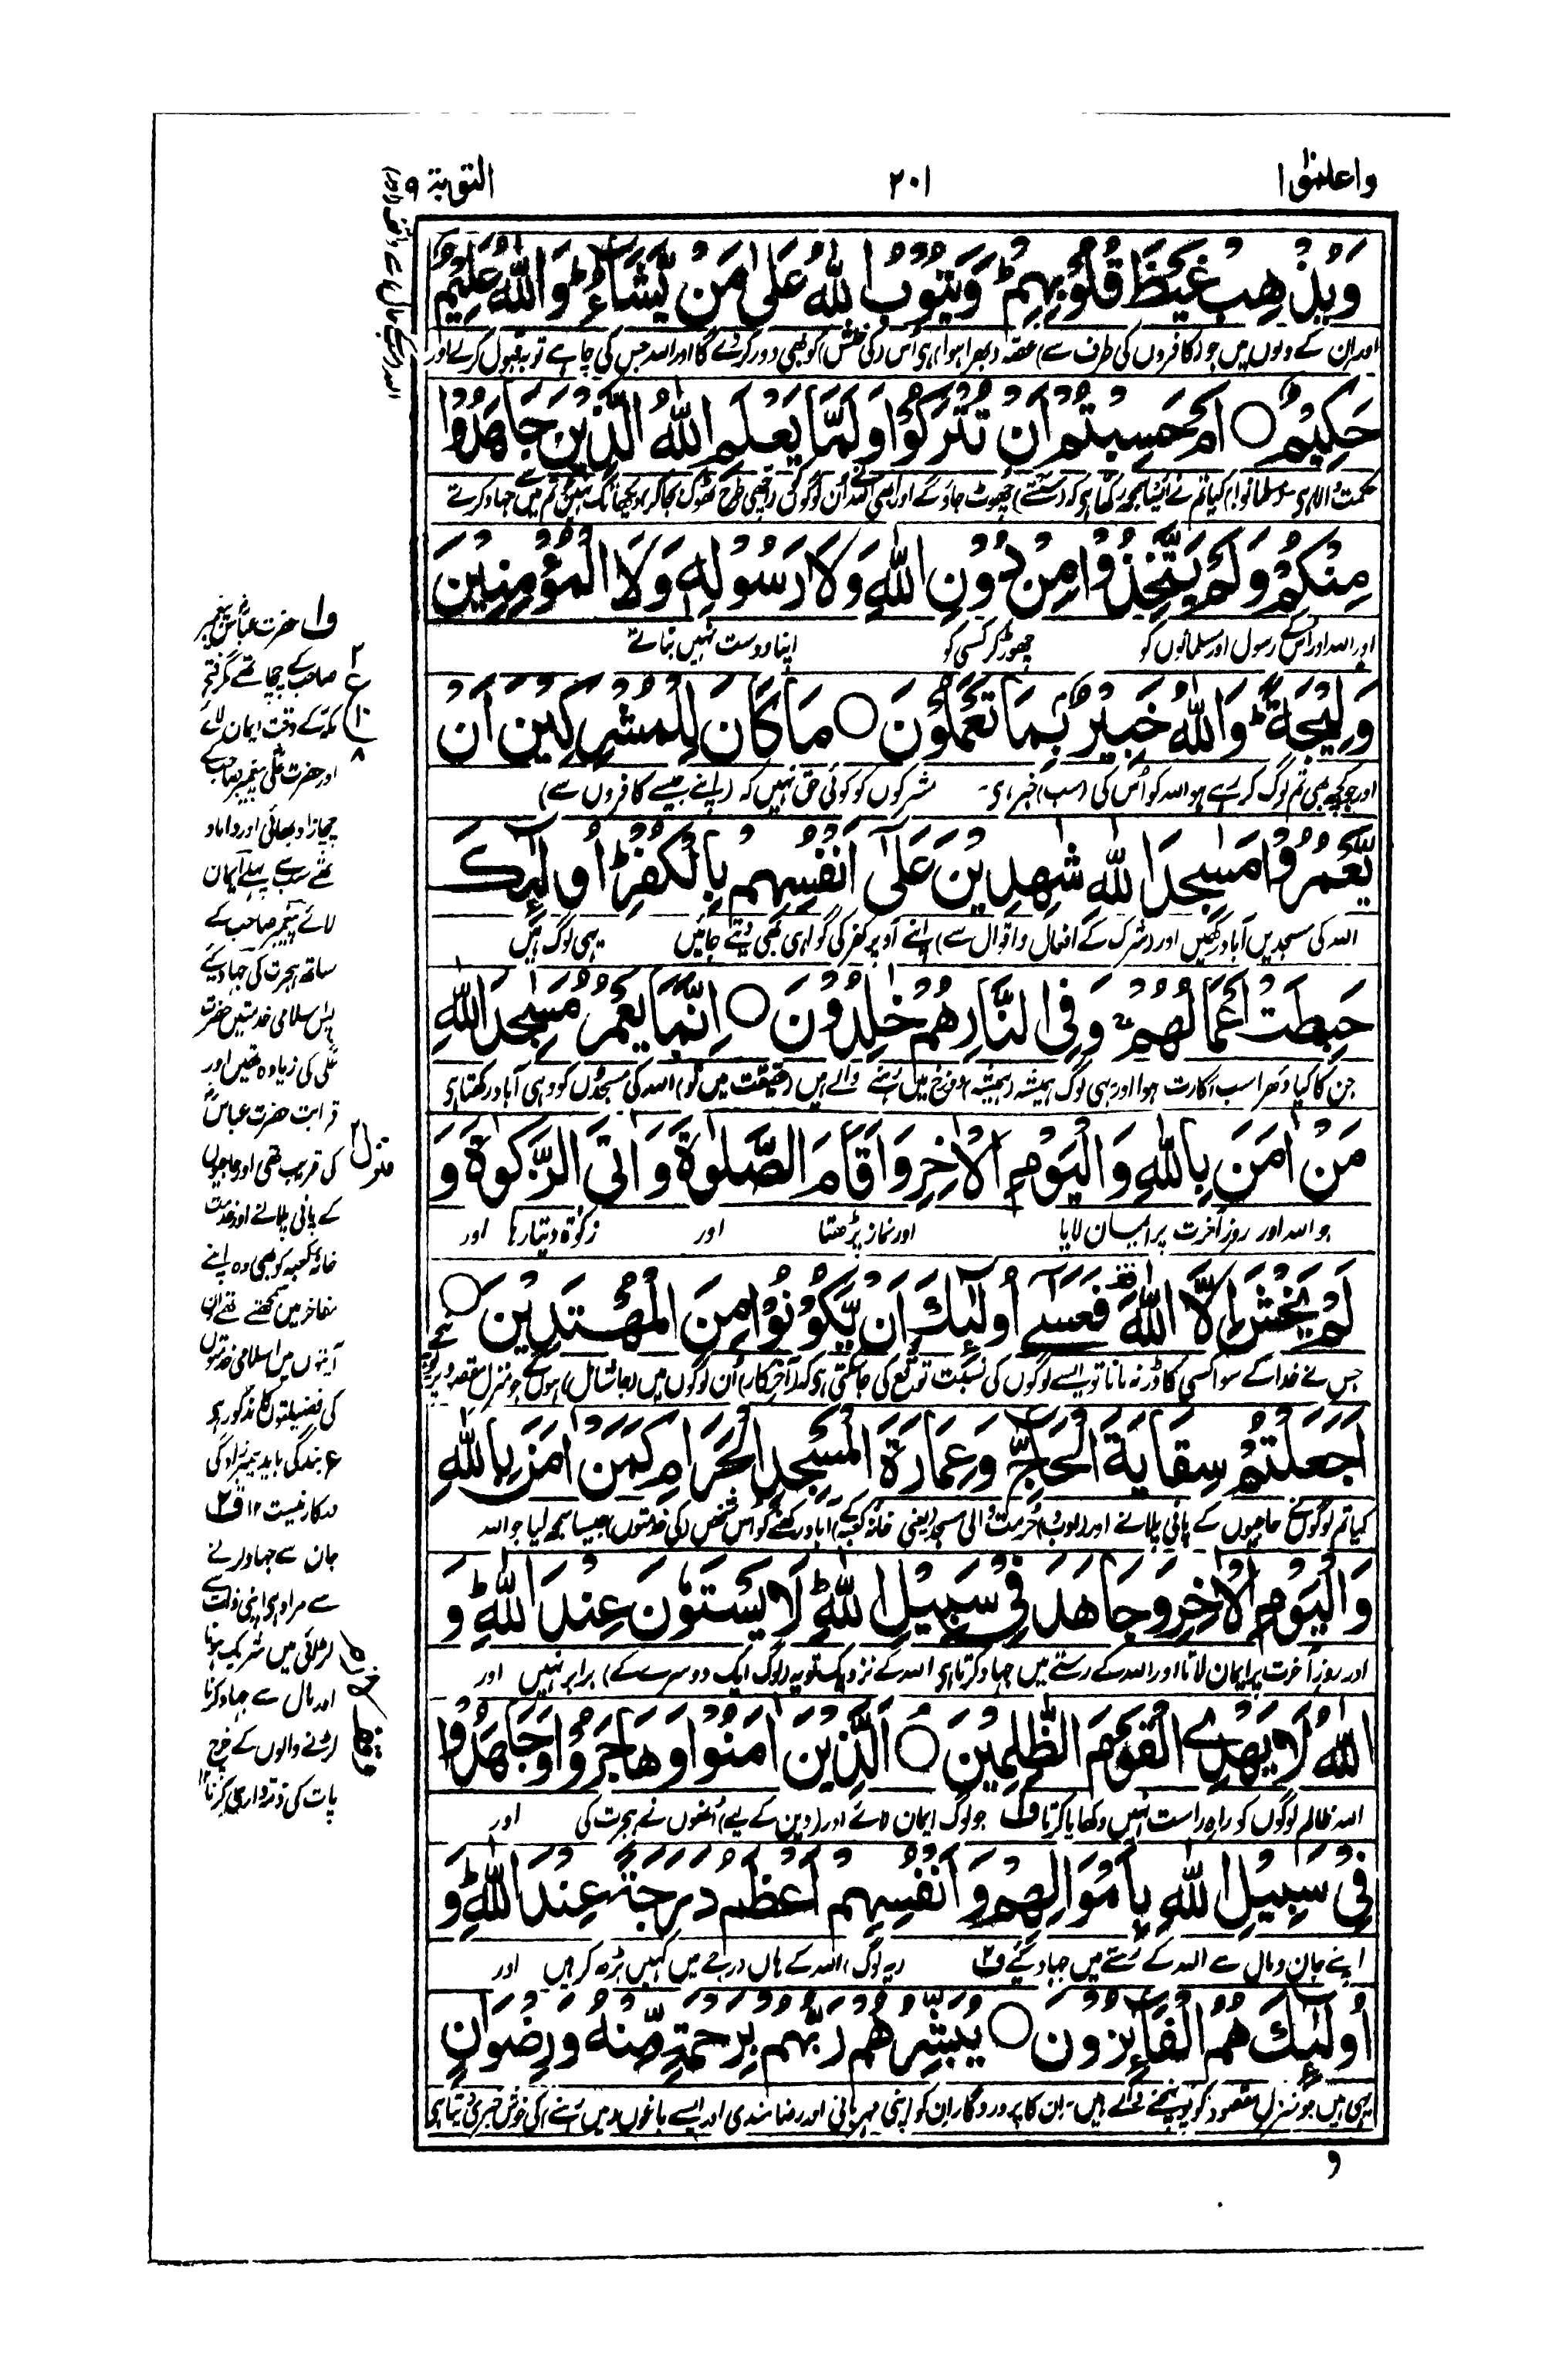 واعلموا ۱۰
۲۰۱
التوبة ۹
وَيُذْهِبْ غَيْظَ قُلُوْبِهِمْ ؕ وَيَتُوْبُ اللّٰهُ عَلٰى مَنْ يَّشَآءُ ؕ وَاللّٰهُ عَلِيْمٌ
اور ان کے دلوں میں جو (کافروں کی طرف سے) غصہ (بھرا ہوا) ہی اُس (کی خلش) کو بھی دور کر دے گا اور اللہ جس کی چاہے توبہ قبول کر لے اور
اللہ (سب کے حال سے) واقف (اور)
حَكِيْمٌ ○ اَمْ حَسِبْتُمْ اَنْ تُتْرَكُوْا وَلَمَّا يَعْلَمِ اللّٰهُ الَّذِيْنَ جَاهَدُوْا
حکمت والا ہی۔ مسلمانو! کیا تم نے ایسا سمجھ رکھا ہو کہ (سستے) چھوٹ جاؤ گے اور ابھی اللہ نے اُن لوگوں کو (اچھی طرح ٹھوک بجا کر) دیکھا تک نہیں جو تم میں سے جہاد کرتے
مِنْكُمْ وَلَمْ يَتَّخِذُوْا مِنْ دُوْنِ اللّٰهِ وَلَا رَسُوْلِهٖ وَلَا الْمُؤْمِنِيْنَ
اور اللہ اور اُس کے رسول اور مسلمانوں کو چھوڑ کر کسی کو اپنا دوست نہیں بناتے
وَلِيْجَةً ؕ وَاللّٰهُ خَبِيْرٌۢ بِمَا تَعْمَلُوْنَ ○ مَا كَانَ لِلْمُشْرِكِيْنَ اَنْ
اور جو کچھ بھی تم لوگ کر رہے ہو اللہ کو اُس کی (سب) خبر ہی۔ مشرکوں کو کوئی حق نہیں کہ (اپنے جیسے کافروں سے)
يَّعْمُرُوْا مَسٰجِدَ اللّٰهِ شٰهِدِيْنَ عَلٰٓى اَنْفُسِهِمْ بِالْكُفْرِ ؕ اُولٰٓئِكَ
اللہ کی مسجدیں آباد رکھیں اور (شرک کے افعال و اقوال سے) اپنے آپ پر کفر کی گواہی بھی دیتے جائیں یہی لوگ ہیں
حَبِطَتْ اَعْمَالُهُمْ ۖ وَفِي النَّارِ هُمْ خٰلِدُوْنَ ○ اِنَّمَا يَعْمُرُ مَسٰجِدَ اللّٰهِ
جن کا کیا دھرا سب اکارت ہوا اور یہی لوگ ہمیشہ (ہمیشہ) دوزخ میں رہنے والے ہیں (حقیقت میں تو) اللہ کی مسجدوں کو وہی آباد رکھتا ہی
مَنْ اٰمَنَ بِاللّٰهِ وَالْيَوْمِ الْاٰخِرِ وَاَقَامَ الصَّلٰوةَ وَاٰتَى الزَّكٰوةَ وَ
جو اللہ اور روز آخرت پر ایمان لایا اور نماز پڑھتا اور زکوٰۃ دیتا رہا اور
لَمْ يَخْشَ اِلَّا اللّٰهَ ۫ فَعَسٰٓى اُولٰٓئِكَ اَنْ يَّكُوْنُوْا مِنَ الْمُهْتَدِيْنَ ○
جس نے خدا کے سوا کسی کا ڈر نہ مانا تو ایسے لوگوں کی نسبت توقع کی جا سکتی ہو کہ (آخرکار) اُن لوگوں میں (جا شامل) ہوں گے جو منزل مقصود پر پہنچے
اَجَعَلْتُمْ سِقَايَةَ الْحَآجِّ وَعِمَارَةَ الْمَسْجِدِ الْحَرَامِ كَمَنْ اٰمَنَ بِاللّٰهِ
کیا تم لوگوں نے حاجیوں کے پانی پلانے اور (ادب و) حرمت والی مسجد (یعنی خانہ کعبہ) کے آباد رکھنے کو اُس شخص (کی خدمتوں) جیسا سمجھ لیا جو اللہ
وَالْيَوْمِ الْاٰخِرِ وَجَاهَدَ فِيْ سَبِيْلِ اللّٰهِ ؕ لَا يَسْتَوٗنَ عِنْدَ اللّٰهِ ؕ وَ
اور روز آخرت پر ایمان لاتا اور اللہ کے رستے میں جہاد کرتا ہی اللہ کے نزدیک تو یہ (لوگ ایک دوسرے کے) برابر نہیں اور
اللّٰهُ لَا يَهْدِي الْقَوْمَ الظّٰلِمِيْنَ ○ اَلَّذِيْنَ اٰمَنُوْا وَهَاجَرُوْا وَجَاهَدُوْا
اللہ ظالم لوگوں کو راہ راست نہیں دکھایا کرتا ف۱ جو لوگ ایمان لائے اور (دین کے لیے) اُنھوں نے ہجرت کی اور
فِيْ سَبِيْلِ اللّٰهِ بِاَمْوَالِهِمْ وَاَنْفُسِهِمْ اَعْظَمُ دَرَجَةً عِنْدَ اللّٰهِ ؕ وَ
اپنے جان و مال سے اللہ کے رستے میں جہاد کیے ف۲ (یہ لوگ) اللہ کے ہاں درجے میں کہیں بڑھ کر ہیں اور
اُولٰٓئِكَ هُمُ الْفَآئِزُوْنَ ○ يُبَشِّرُهُمْ رَبُّهُمْ بِرَحْمَةٍ مِّنْهُ وَرِضْوَانٍ
یہی ہیں جو منزل مقصود کو پہنچنے والے ہیں۔ اِن کا پروردگار اِن کو اپنی مہربانی اور رضامندی اور ایسے باغوں (میں رہنے) کی خوش خبری دیتا ہی
و
ف۱ حضرت عباسؓ پیغمبر
صاحب کے چچا تھے مگر فتح
مکہ کے وقت ایمان لائے
اور حضرت علیؓ پیغمبر صاحب کے
چچازاد بھائی اور داماد
تھے سب سے پہلے ایمان
لائے پیغمبر صاحب کے
ساتھ ہجرت کی جہاد کیے
پس اسلامی خدمتیں حضرت
علی کی زیادہ تھیں اور
قرابت حضرت عباسؓ
کی قریب تھی اور حاجیوں
کے پانی پلانے اور خدمت
خانہ کعبہ کو بھی وہ اپنے
مفاخر میں سمجھتے تھے ان
آیتوں میں اسلامی خدمتوں
کی فضیلتوں کا مذکور ہی
ع بندگی باید پیمبرزادگی
درکار نیست ۱۲ ف۲
جان سے جہاد کرنے
سے مراد ہی اپنی ذات سے
لڑائی میں شریک ہونا
اور مال سے جہاد کرنا
لڑنے والوں کے خرچ
پات کی ذمہ داری کرنا ۱۲
۲
ع
۱۰
۸
منزل ۲